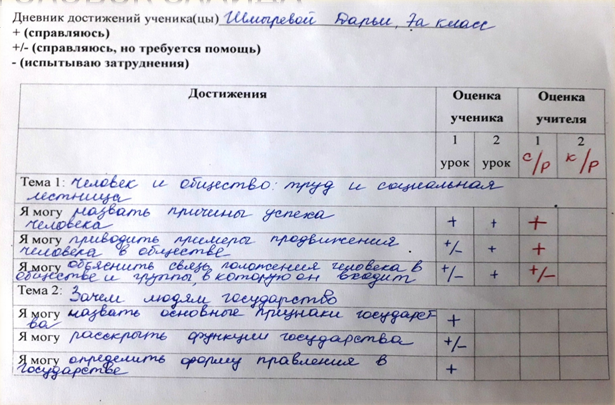 Дневник достижений ученика(цы) Шмыревой Дарьи, 7а класс
+ (справляюсь)
+/- (справляюсь, но требуется помощь)
- (испытываю затруднения)
Достижения Оценка ученика Оценка учителя
1 урок 2 урок 1 с/р 2 к/р
Тема 1: Человек и общество: труд и социальная
лестница
Я могу назвать причины успеха
человека + + +
Я могу приводить примеры продвижения
человека в обществе +/- + +
Я могу объяснить связь положения человека в
обществе и группы в которую он входит +/- + +/-
Тема 2: Зачем людям государство
Я могу назвать основные признаки государст-
ва +
Я могу расскрыть функции государства +/-
Я могу определить форму правления в
государстве +